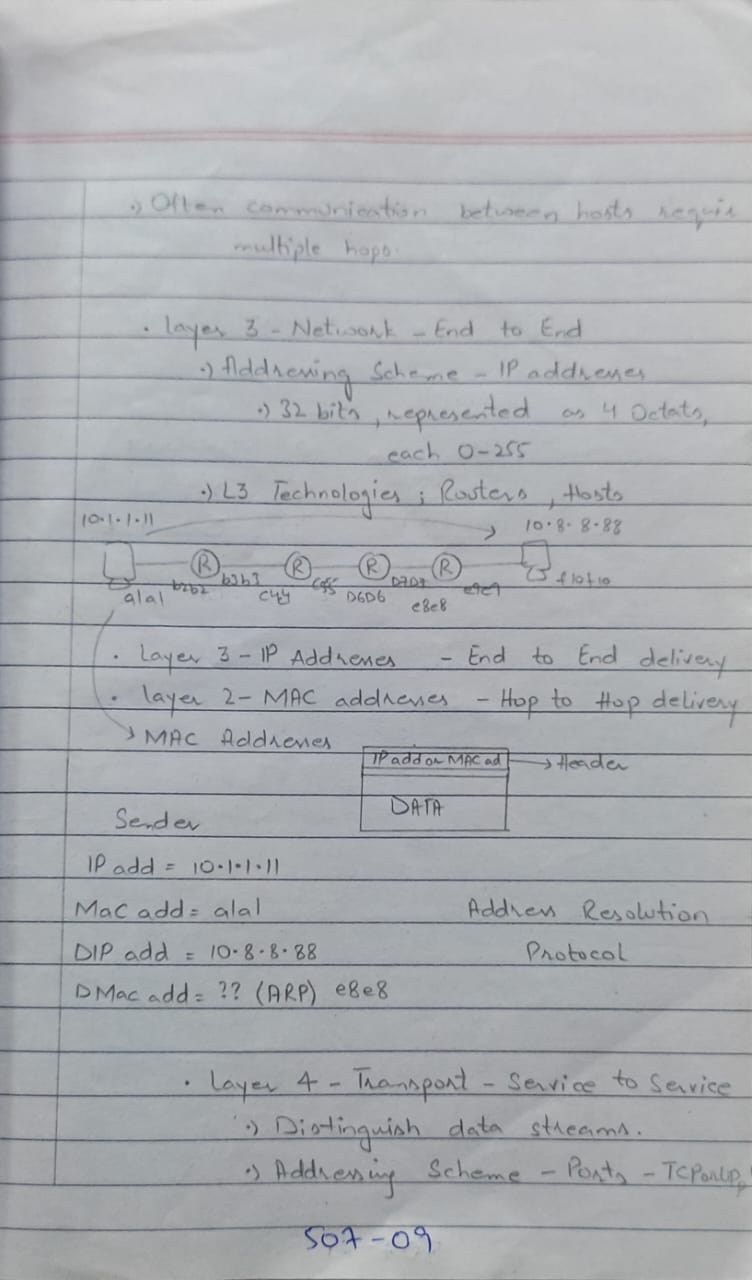 •) Often communication between hosts requir
multiple hops.
• Layer 3 - Network - End to End
•) Addressing Scheme - IP addresses
•) 32 bits, represented as 4 Octats,
each 0-255
•) L3 Technologies; Routers, Hosts
10.1.1.11 10.8.8.88
R R R R
a1a1 b2b2 b3b3 C4y C5c5 D6D6 D7D7 e8e8 e9e9 f10f10
• Layer 3 - IP Addresses - End to End delivery
• Layer 2 - MAC addresses - Hop to Hop delivery
MAC Addresses
IP add or MAC ad → Header
DATA
Sender
IP add = 10.1.1.11
Mac add = a1a1 Address Resolution
DIP add = 10.8.8.88 Protocol
DMac add = ?? (ARP) e8e8
• Layer 4 - Transport - Service to Service
•) Distinguish data streams.
•) Addressing Scheme - Ports - TCP or UDP
S07-09